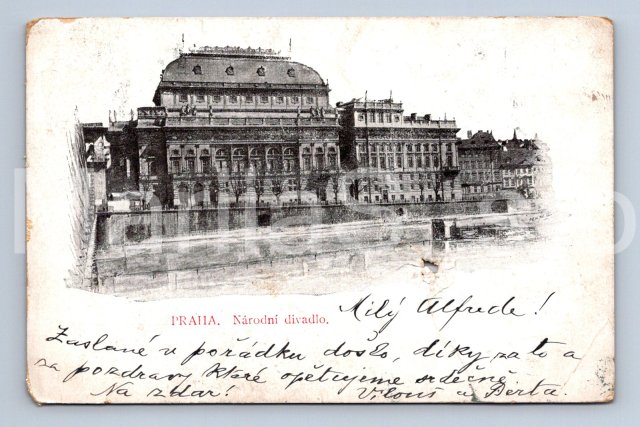 PRAHA. Národní divadlo.
Milý Alfrede!
Zaslané v pořádku došlo, díky za to a
za pozdravy které opětujeme srdečně
Na zdar! a Berta.